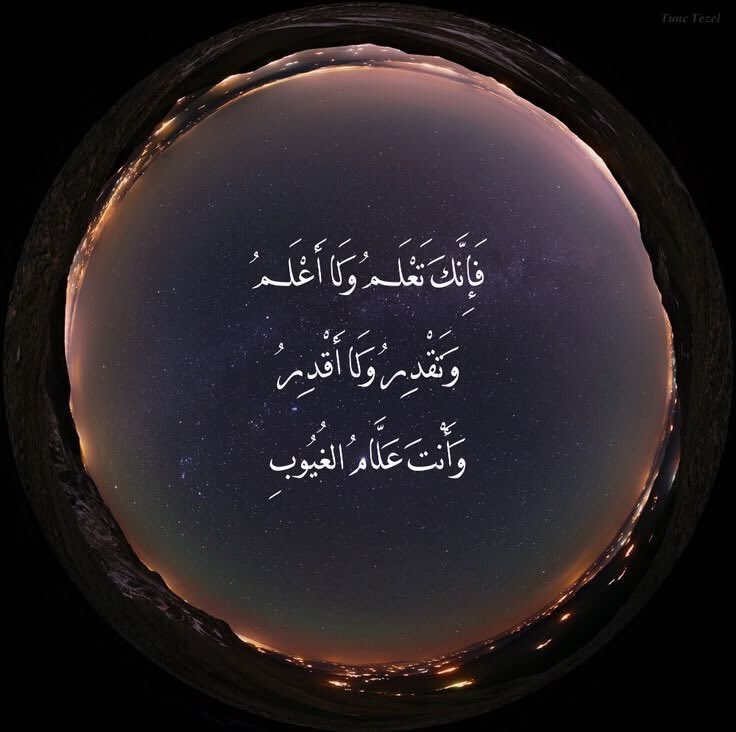 Tunc Tezel
فَإِنَّكَ تَعْلَـمُ وَلَا أَعْلَـمُ
وَتَقْدِرُ وَلَا أَقْدِرُ
وَأَنْتَ عَلَّامُ الغُيُوبِ